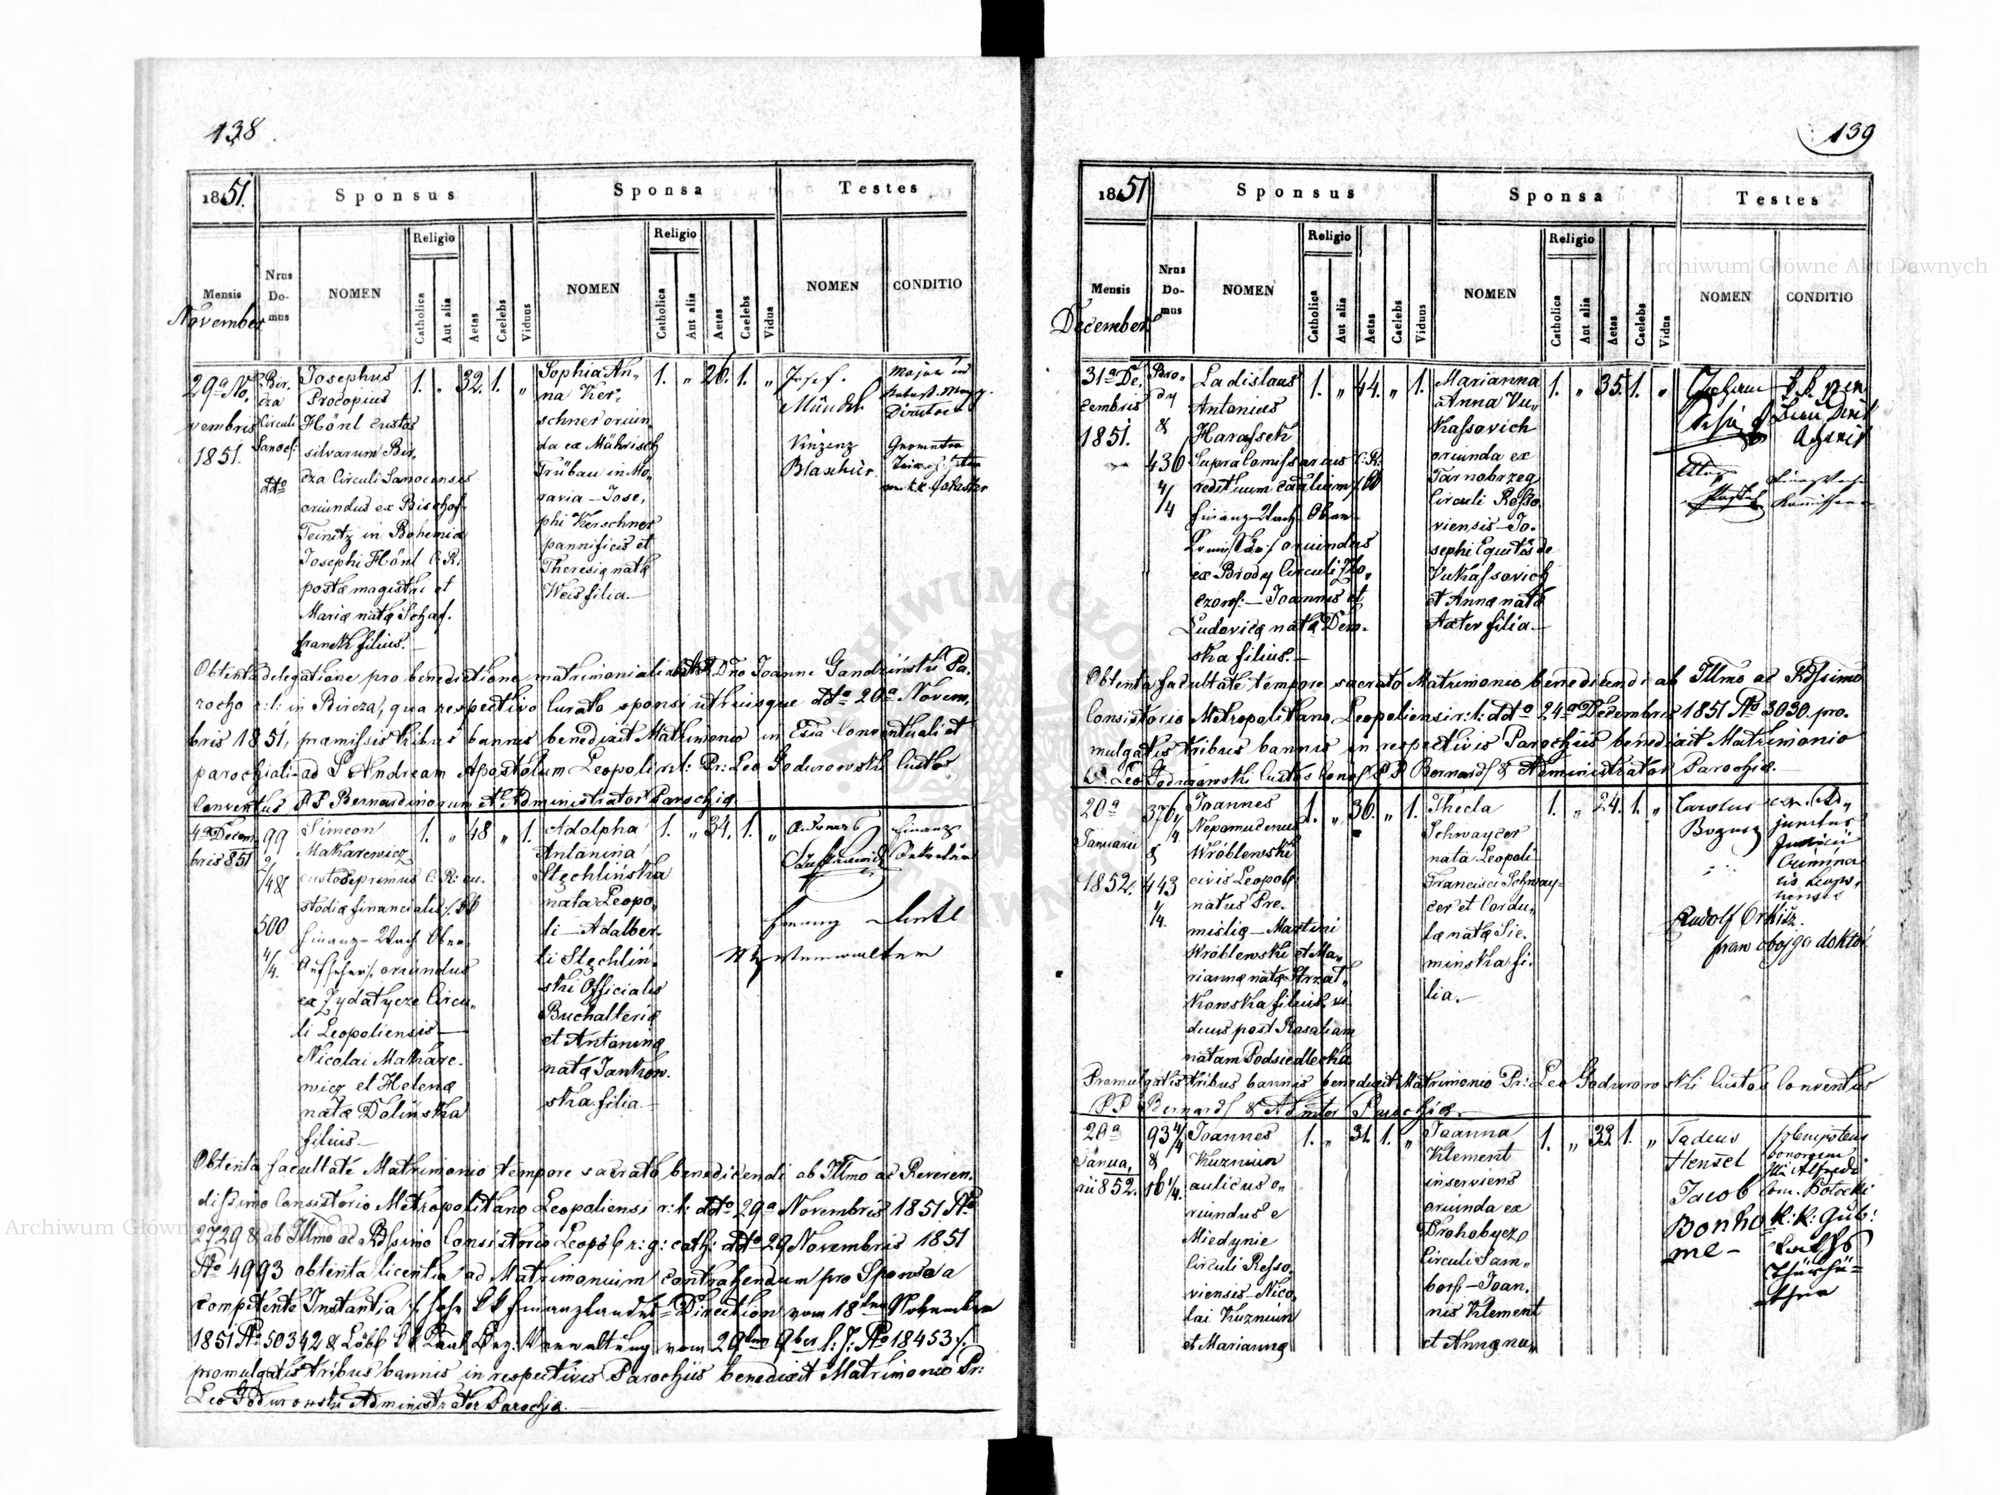 138
1851.
Sponsus
Sponsa
Testes
Mensis
November
Nrus Domus
NOMEN
Religio
Catholica
Aut alia
Aetas
Caelebs
Viduus
NOMEN
Religio
Catholica
Aut alia
Aetas
Caelebs
Vidua
NOMEN
CONDITIO
29a No,
vembris
1851.
Bir,
cza
Circuli
Sanoc:
ddto
Josephus
Procopius
Hönl custos
silvarum Bir,
cza Circuli Sanocensis
oriundus ex Bischof
Teinitz in Bohemia
Josephi Hönl C. R.
postæ magistri et
Mariæ natæ Schaf.
franck filius.—
1. „ 32. 1. „
Sophia An,
na Ker,
schner oriun,
da ex Mährisch
Trübau in Mo,
ravia — Jose,
phi Kerschner
pannificis et
Theresiæ natæ
Weis filia.—
1. „ 26. 1. „
Josef
Münch
Vinzenz
Blaschke
Major in
Director
Geometer
Obtenta delegatione pro benedictione matrimoniali a Dno Joanne Gandziński Pa,
rocho r: l: in Bircza, qua respectivo Curato sponsi utriusque ddto 20a Novem,
bris 1851, præmissis tribus bannis benedixit Matrimonio in Ecclia Conventuali et
parochiali ad S. Andream Apostolum Leopoli r: l: Pr: Leo Godurowski Custos
Conventus PP Bernardinorum et Administrator Parochiæ
4a Decem,
bris 851
99
2/4 &
500
4/4.
Simeon
Makarewicz
custos primus C: R: cu,
stodiæ financialis /: kk
Finanz-Wach Ober
Aufseher :/ oriundus
ex Zydatycze Circu,
li Leopoliensis —
Nicolai Makare.
wicz et Helenæ
natæ Dolińska
filius.—
1. „ 48 „ 1.
Adolpha
Antonina
Stęchlińska
nata Leopo,
li — Adalber,
ti Stęchliń,
ski Officialis
Buchalteriæ
et Antoninæ
natæ Jankow.
ska filia.—
1. „ 34. 1. „
Finanz
Sekretär
Obtenta facultate Matrimonio tempore sacrato benedicendi ab Illmo ac Reveren,
dissimo Consistorio Metropolitano Leopoliensi r: l: ddto 29a Novembris 1851 No
2729 & ab Illmo ac Rdssimo Consistorio Leopol r: g: cath: ddto 29 Novembris 1851
No 4993 obtenta licentia ad Matrimonium contrahendum pro Sponso a
competente Instantia /: hohe kk Finanzlandes-Direction vom 18ten November
1851 No 50342 & Löbl kk Kaal Bez. Verwaltung vom 29ten 9ber l: J: No 18453 :/
promulgatis tribus bannis in respectivis Parochiis benedixit Matrimonio Pr:
Leo Godurowski Administrator Parochiæ.
139
1851
Sponsus
Sponsa
Testes
Mensis
December
Nrus Domus
NOMEN
Religio
Catholica
Aut alia
Aetas
Caelebs
Viduus
NOMEN
Religio
Catholica
Aut alia
Aetas
Caelebs
Vidua
NOMEN
CONDITIO
31a De,
cembris
1851.
Bro,
dy
&
436
4/4
Ladislaus
Antonius
Harassek
Supra Comissarius C: R:
vectium
Finanz-Wach Ober
Comissär :/ oriundus
ex Brody Circuli Zło,
czow: — Joannis et
Ludovicæ natæ Dem.
ska filius.—
1. „ 44. „ 1.
Marianna
Anna Vu,
kassovich
oriunda ex
Tarnobrzeg
Circuli Resso
viensis — Jo,
sephi Equitis de
Vukassovich
et Annæ natæ
Axter filia.—
1. „ 35. 1. „
Obtenta facultate tempore sacrato Matrimonio benedicendi ab Illmo ac Rdssimo
Consistorio Metropolitano Leopoliensi r: l: ddto 24a Decembris 1851 No 3030. pro,
mulgatis tribus bannis in respectivis Parochiis benedixit Matrimonio
Leo Godurowski Custos Conv PP Bernard & Administrator Parochiæ.—
20a
Januarii
1852.
376,
4/4
&
443
1/4.
Joannes
Nepomucenus
Wróblewski
civis Leopol:
natus Pre,
misliæ — Martini
Wróblewski et Ma,
riannæ natæ Strzał,
kowska filius, vi
duus post Rosaliam
natam Podsiedlecka
1. „ 36. „ 1.
Thecla
Schwaycer
nata Leopoli
Francisci Schway
cer et Cordu,
læ natæ Sie.
mińska fi,
lia.—
1. „ 24. 1. „
Carolus
Bogucz
Rudolf Orkisz.
praw oboyga doktór
Promulgatis tribus bannis benedixit Matrimonio Pr: Leo Godurowski Custos Conventus
PP Bernard & Admtor Parochiæ.
20a
Janua,
rii 852.
93 4/4
&
16 1/4.
Joannes
Kuzniun
aulicus o,
riundus e
Miedynie
Circuli Resso.
viensis — Nico,
lai Kuzniun
et Mariannæ
1. „ 31. 1. „
Joanna
Klement
inserviens
oriunda ex
Drohobycz
Circuli Sam,
bor: — Joan,
nis Klement
et Annæ na,
1. „ 33. 1. „
Tadeus
Hensel
Jacob
Bonho
me —
bonorum
Illi Alfredi
Com. Potocki
k: k: Gub:
Raths
Thürhü=
ther
Archiwum Główne Akt Dawnych